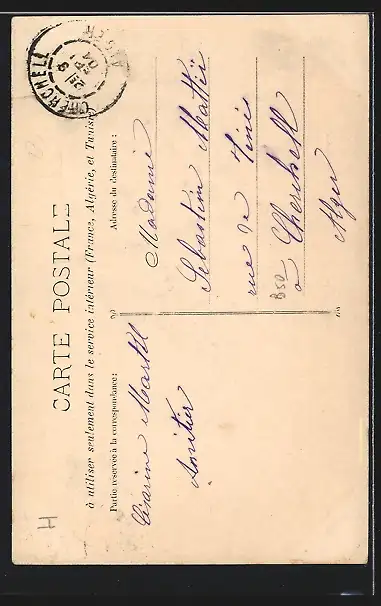 CARTE POSTALE
à utiliser seulement dans le service intérieur (France, Algérie, et Tunisie)
Partie réservée à la correspondance :
Adresse du destinataire :
Césarine Martel
Amitiés
Madame
Sébastien Mattéi
rue de Ténès
à Cherchell
Alger
CHERCHELL
ALGER
B50
H